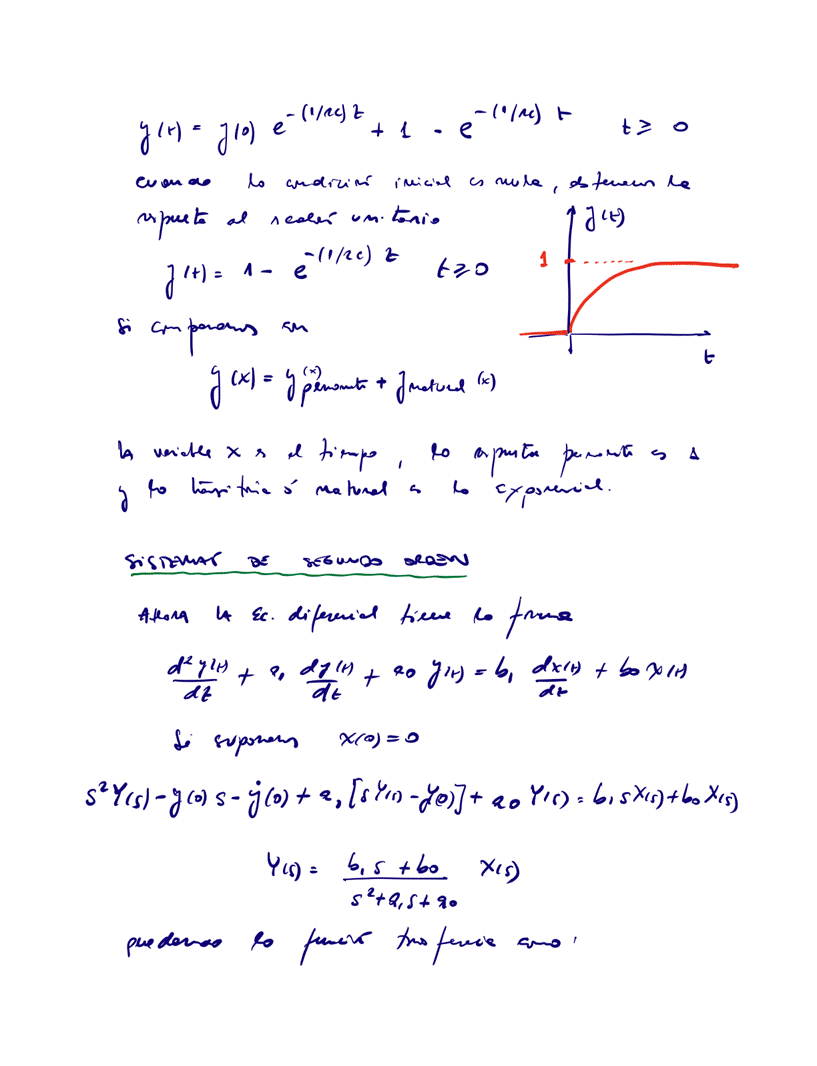 y(t) = y(0) e^-(1/RC)t + 1 - e^-(1/RC)t t ≥ 0
cuando la condición inicial es nula, obtenemos la
respuesta al escalón unitario
y(t)
y(t) = 1 - e^-(1/RC)t t ≥ 0
1
t
Si comparamos con
y(x) = y(x) permanente + y natural (x)
la variable x es el tiempo, la respuesta permanente es 1
y la transitoria ó natural es la exponencial.
SISTEMAS DE SEGUNDO ORDEN
AHORA LA Ec. diferencial tiene la forma
d²y(t)/dt + a₁ dy(t)/dt + a₀ y(t) = b₁ dx(t)/dt + b₀ x(t)
Si suponemos x(0) = 0
s²Y(s) - y(0) s - ẏ(0) + a₁ [sY(s) - y(0)] + a₀ Y(s) = b₁ s X(s) + b₀ X(s)
Y(s) = (b₁ s + b₀)/(s² + a₁ s + a₀) X(s)
la función como